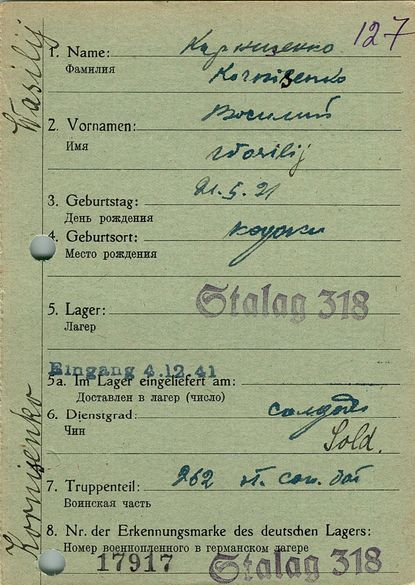 127
1. Name: Карниценко
Фамилия Kornisenko
2. Vornamen: Восилий
Имя Wasilij
3. Geburtstag: 21.5.21
День рождения
4. Geburtsort:
Место рождения
5. Lager: Stalag 318
Лагер
Eingang 4.12.41
5a. Im Lager eingeliefert am:
Доставлен в лагер (число)
6. Dienstgrad: солдат
Чин Sold.
7. Truppenteil: 262
Воинская часть
8. Nr. der Erkennungsmarke des deutschen Lagers:
Номер военнопленного в германском лагере
17917 Stalag 318
Kornisenko Wasilij